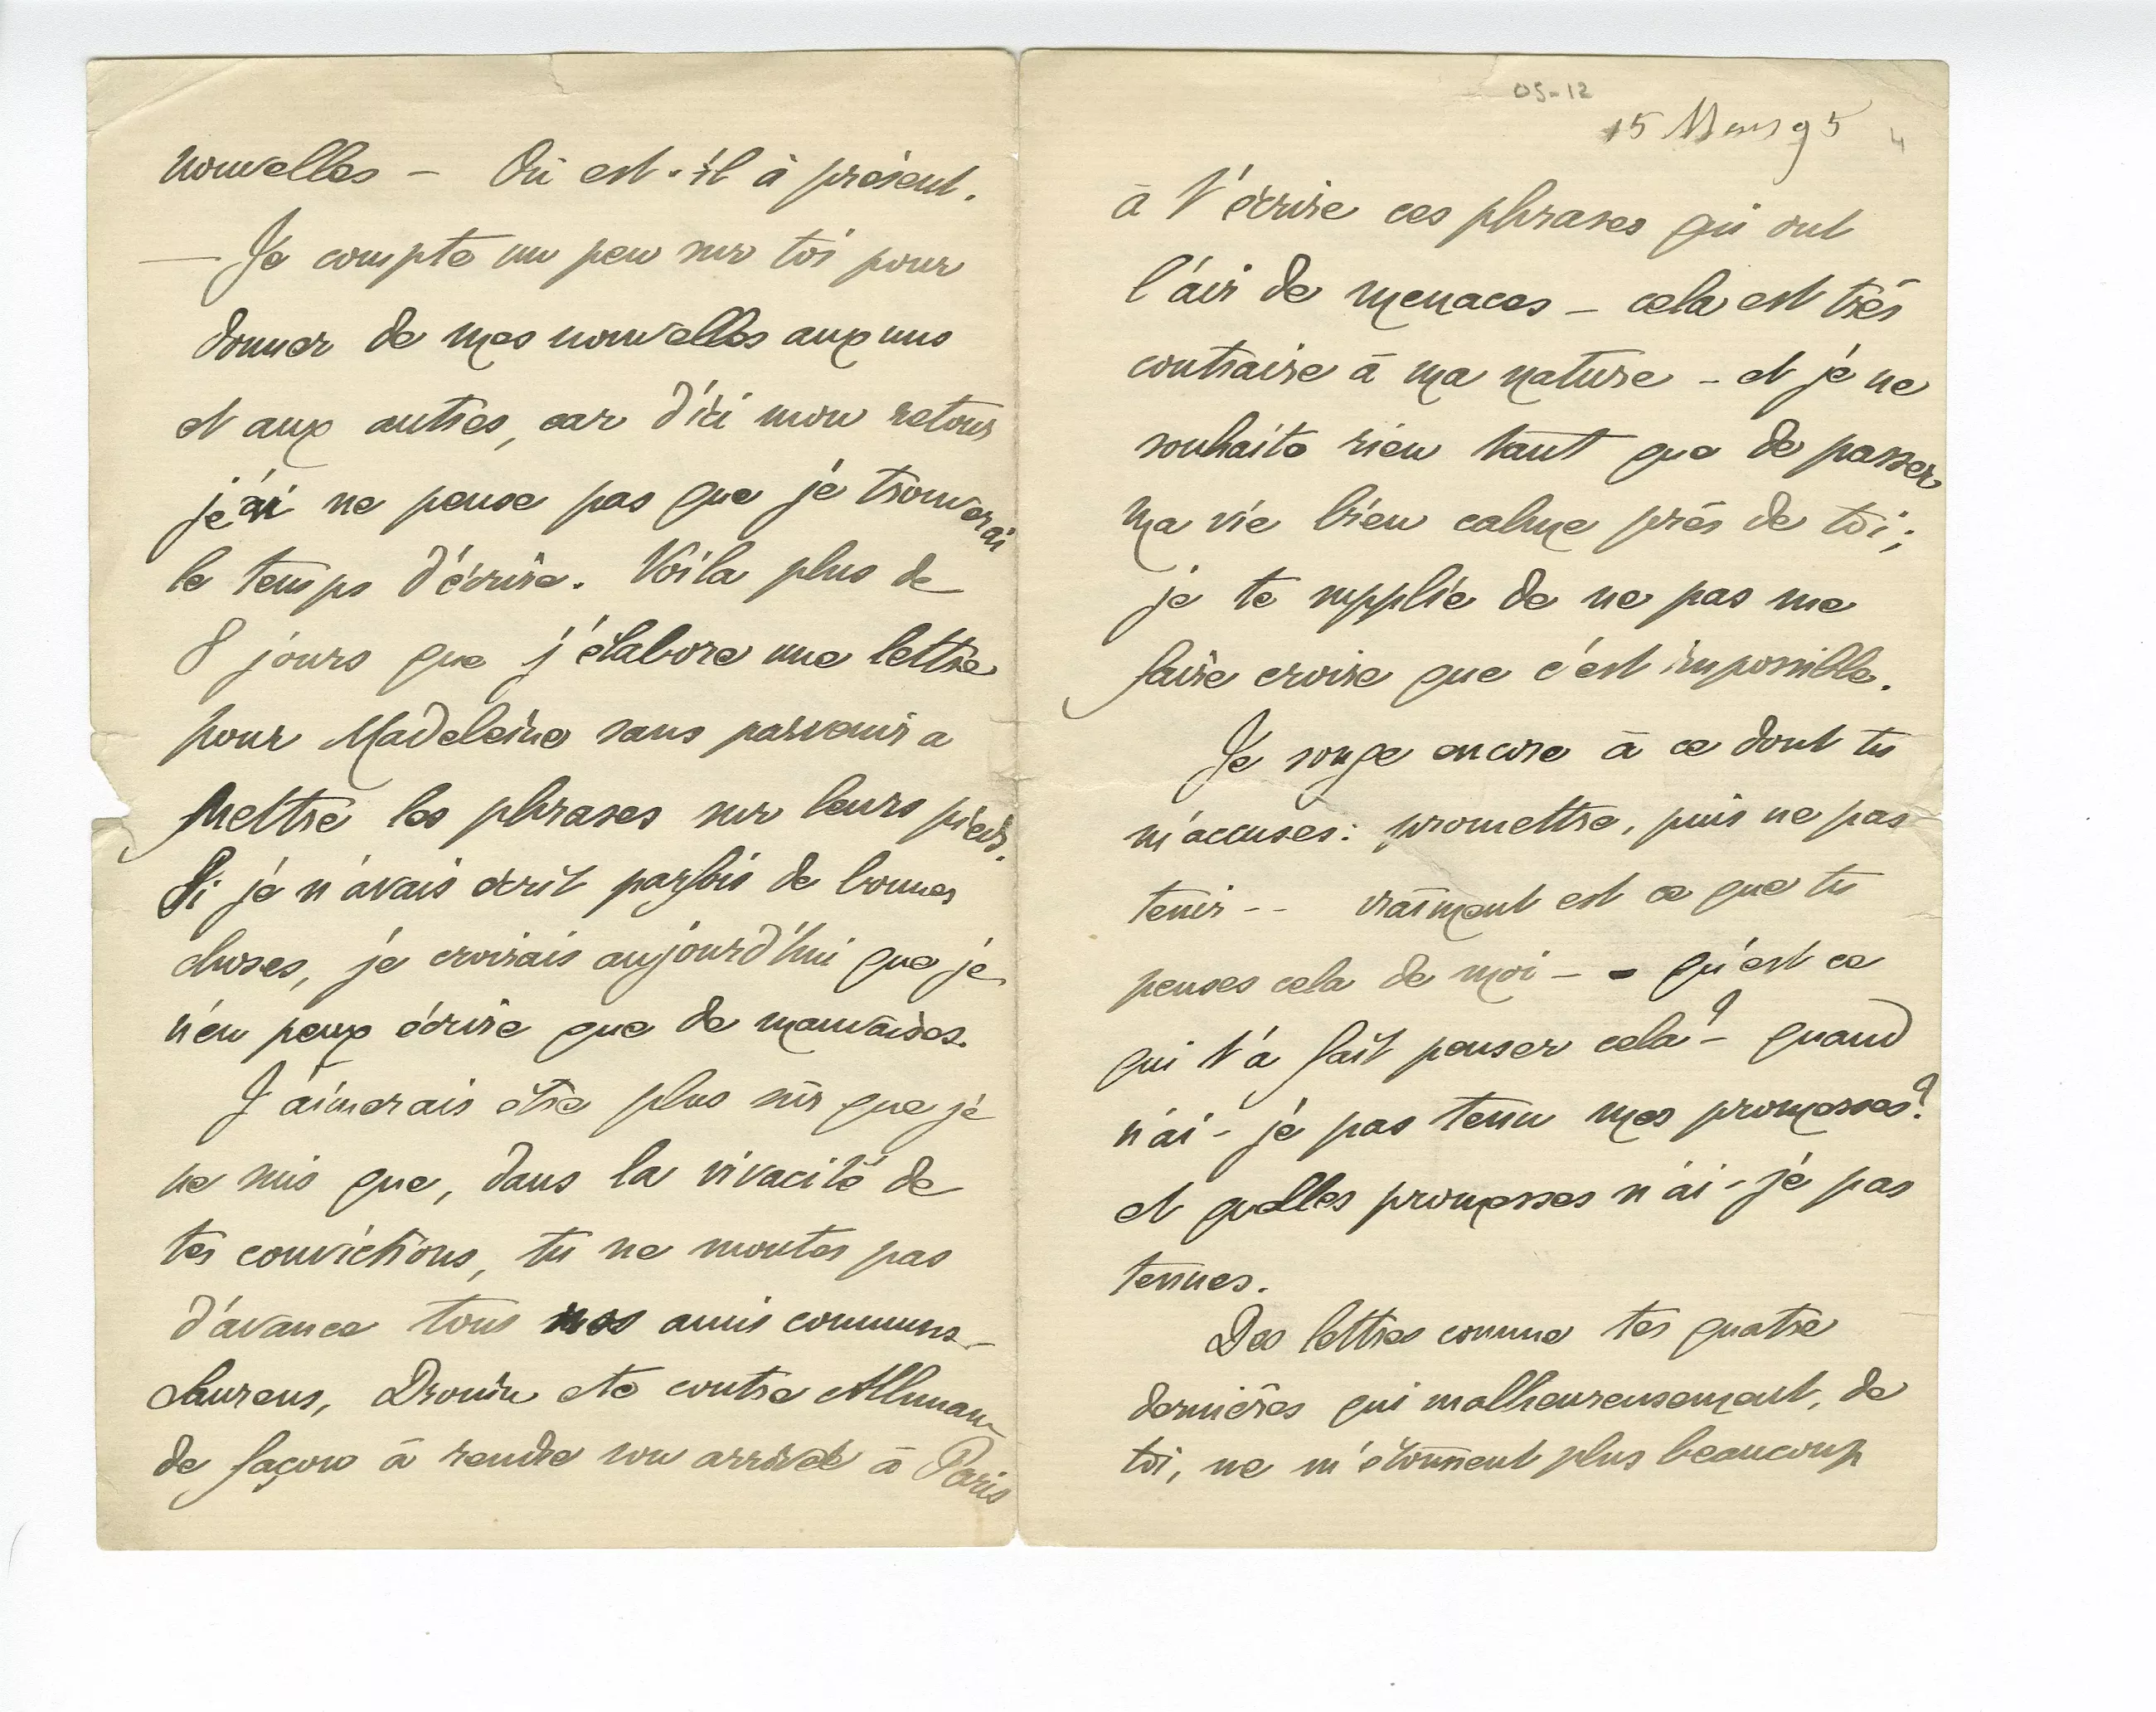 nouvelles — Où est-il à présent.
— Je compte un peu sur toi pour
donner de mes nouvelles aux uns
et aux autres, car d'ici mon retour
je ne pense pas que je trouverai
le temps d'écrire. Voila plus de
8 jours que j'élabore une lettre
pour Madeleine sans parvenir a
mettre les phrases sur leurs pieds.
Si je n'avais écrit parfois de bonnes
choses, je croirais aujourd'hui que je
n'en peux écrire que de mauvaises.
J'aimerais être plus sûr que je
ne suis que, dans la vivacité de
tes convictions, tu ne montes pas
d'avance tous nos amis communs —
Laurens, Drouin etc contre Allmann
de façon à rendre son arrivée à Paris
05-12
15 Mars 95
4
à t'écrire ces phrases qui ont
l'air de menaces — cela est très
contraire à ma nature — et je ne
souhaite rien tant que de passer
ma vie bien calme près de toi ;
je te supplie de ne pas me
faire croire que c'est impossible.
Je songe encore à ce dont tu
m'accuses : promettre, puis ne pas
tenir -- vraiment est ce que tu
penses cela de moi — - qu'est ce
qui t'a fait penser cela ? — quand
n'ai-je pas tenu mes promesses ?
et quelles promesses n'ai-je pas
tenues.
Des lettres comme tes quatre
dernières qui malheureusement, de
toi, ne m'étonnent plus beaucoup